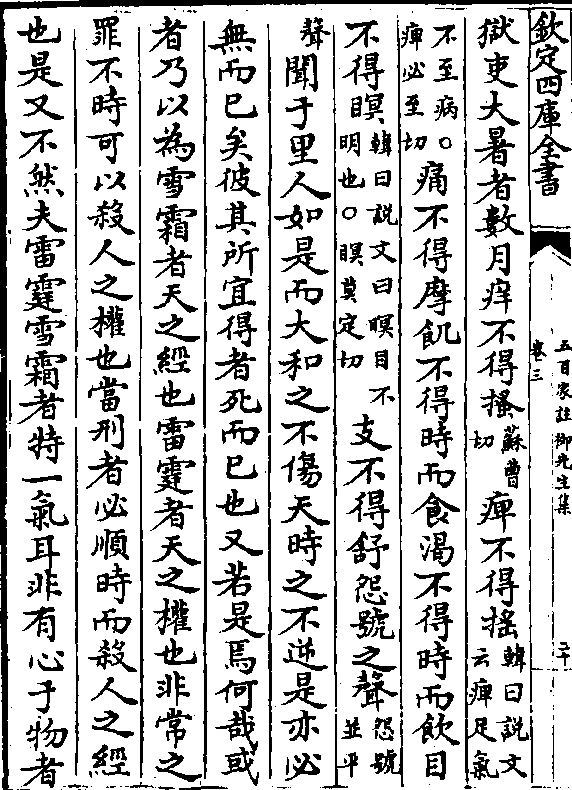 欽定四庫全書
五百家註柳先生集
卷三
二十
獄吏大暑者數月痒不得搔蘇曹切痺不得搖韓曰說文云痺足氣
不至病○痺必至切痛不得摩飢不得時而食渴不得時而飲目
不得瞑韓曰說文曰瞑目不明也○瞑莫定切支不得舒怨號之聲怨號並平
聲聞于里人如是而大和之不傷天時之不逆是亦必
無而已矣彼其所宜得者死而已也又若是焉何哉或
者乃以為雪霜者天之經也雷霆者天之權也非常之
罪不時可以殺人之權也當刑者必順時而殺人之經
也是又不然夫雷霆雪霜者特一氣耳非有心于物者